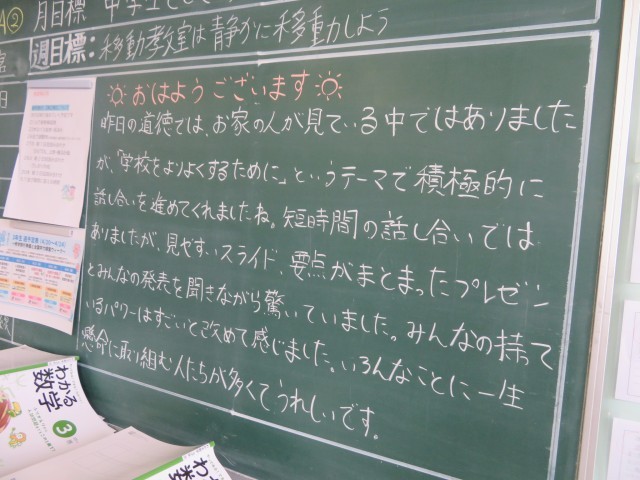 A②
月目標 中学生として
週目標：移動教室は静かに移動しよう
おはようございます
昨日の道徳では、お家の人が見ている中ではありました
が、「学校をよりよくするために」というテーマで積極的に
話し合いを進めてくれましたね。短時間の話し合いでは
ありましたが、見やすいスライド、要点がまとまったプレゼン
とみんなの発表を聞きながら驚いていました。みんなの持って
いるパワーはすごいと改めて感じました。いろんなことに一生
懸命に取り組む人たちが多くてうれしいです。
日
わかる
数学
3
わかる